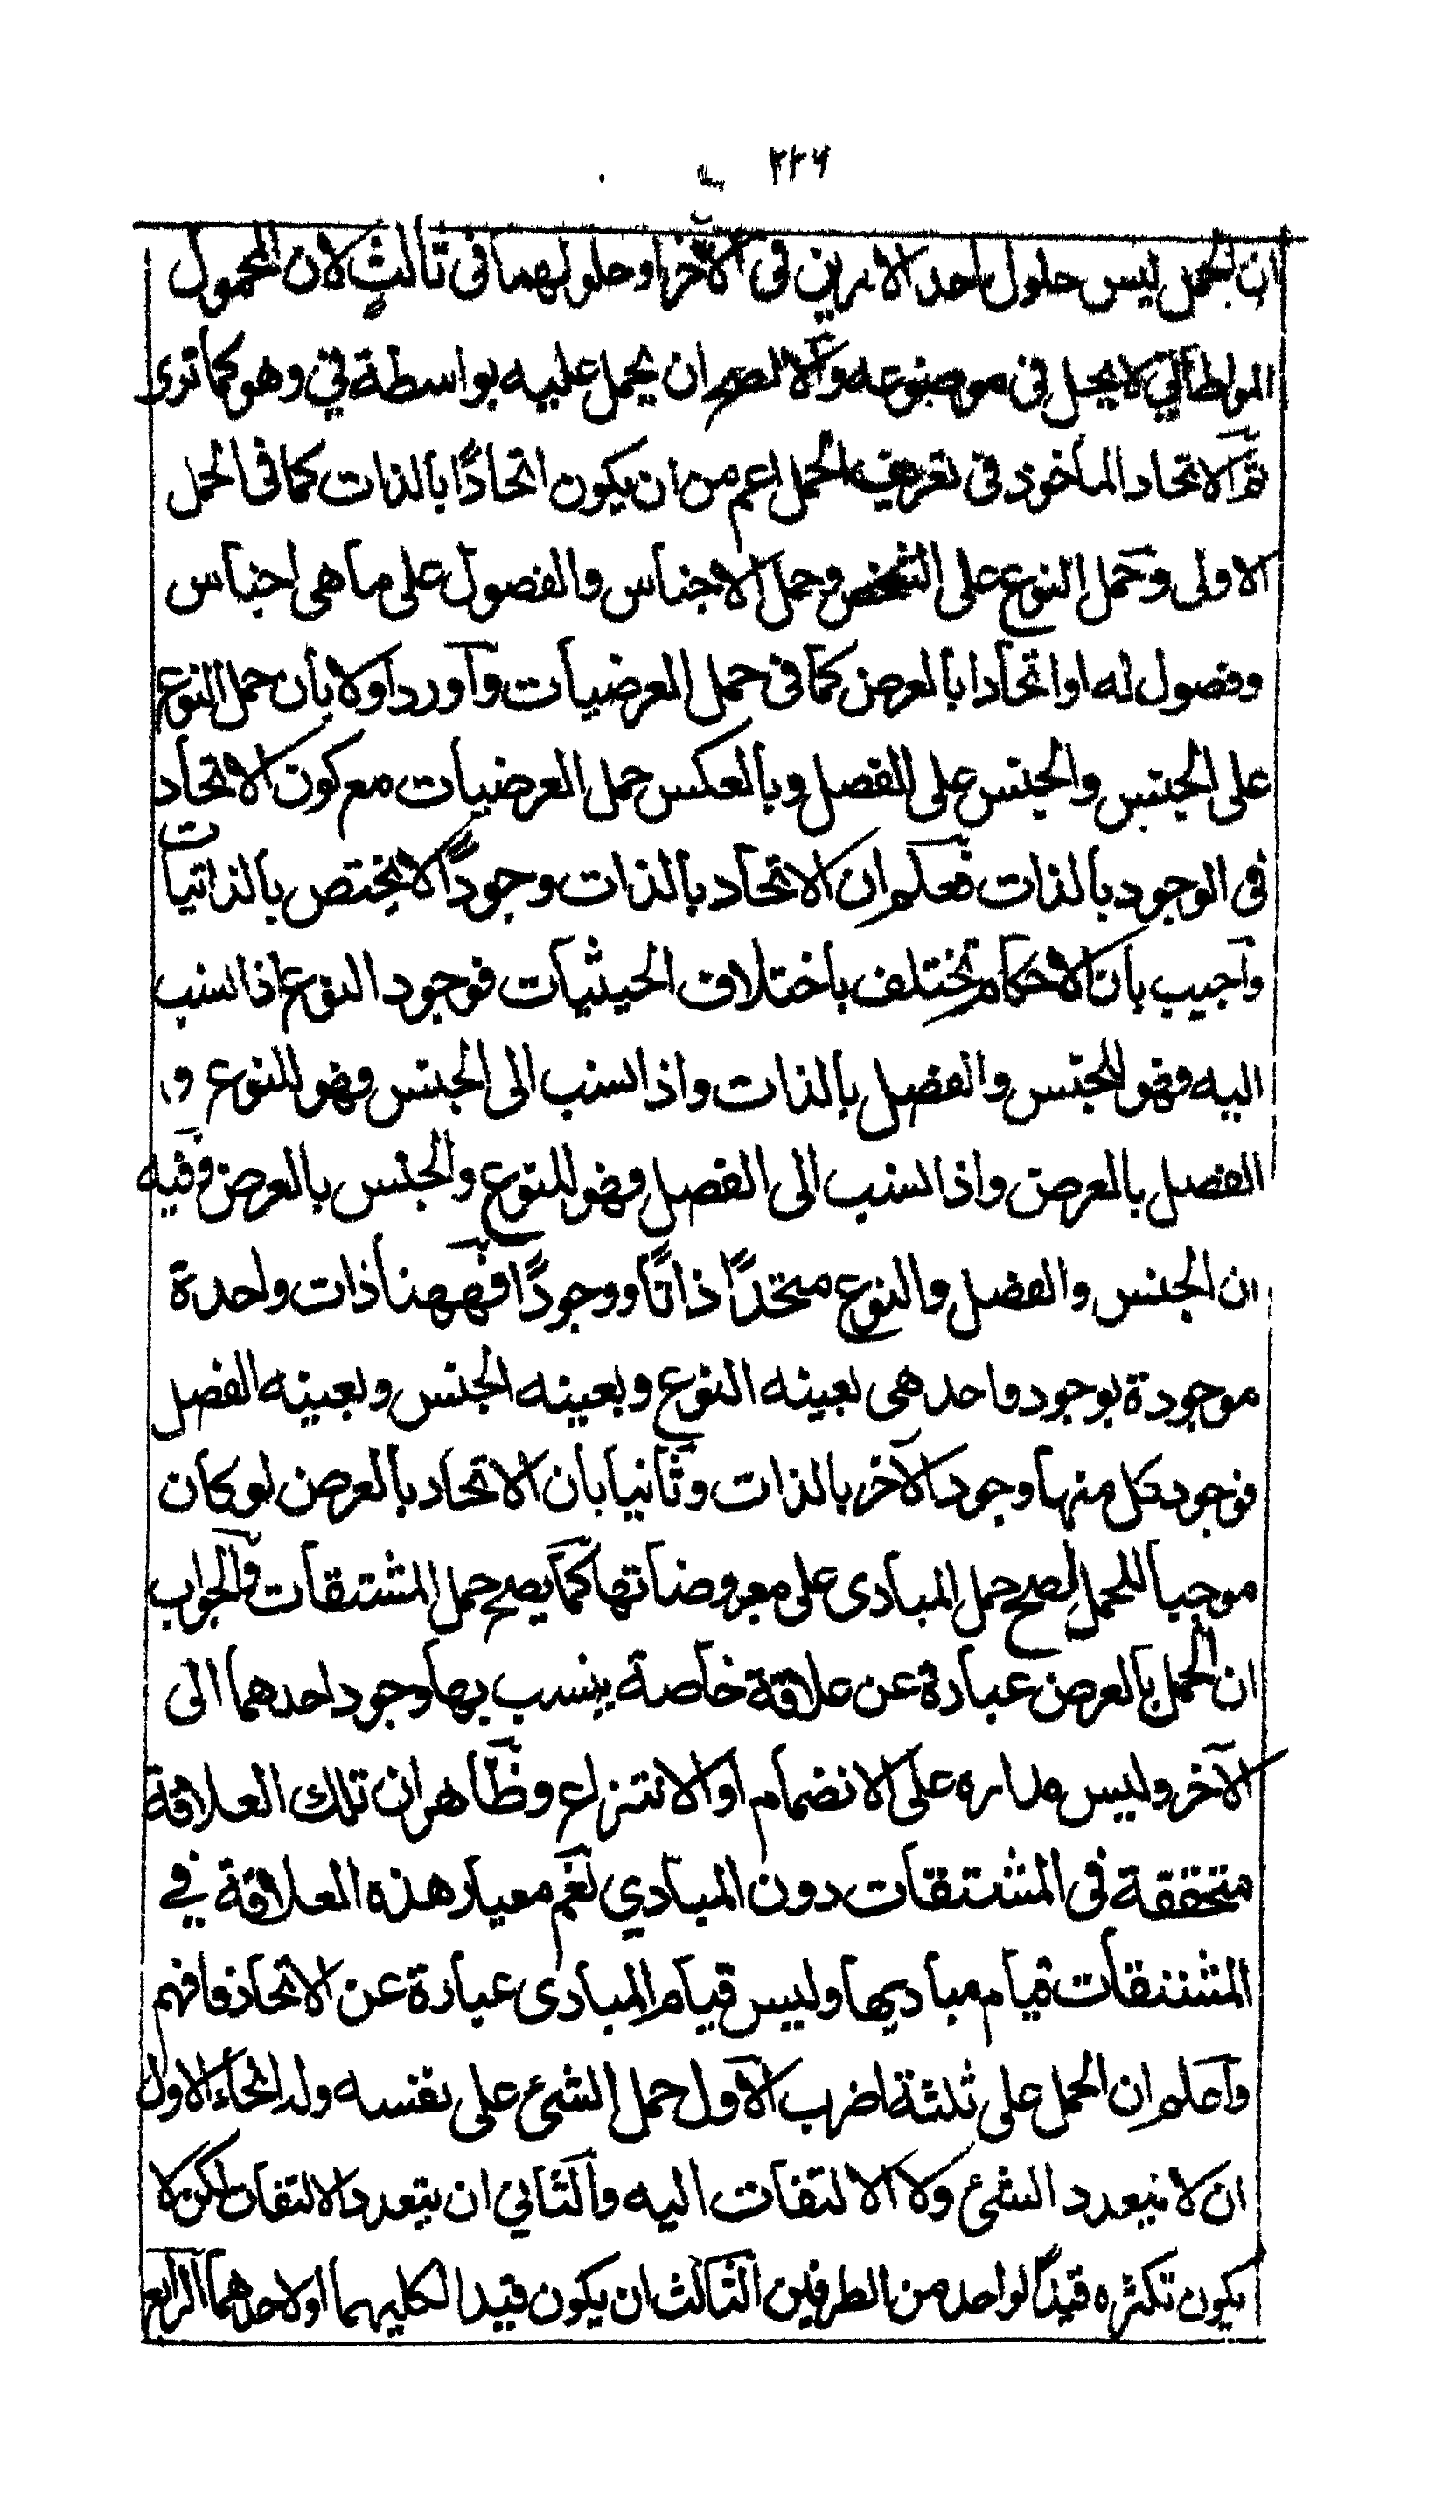 ٢٢٦
ان الحمل ليس حلول احد الامرين فى الآخر او حلولهما فى ثالث لان المحمول
المواطاتي لا يحل فى موضوعه والا لصح ان يحمل عليه بواسطة في وهو كما ترى
ثم الاتحاد المأخوذ فى تعريف الحمل اعم من ان يكون اتحادًا بالذات كما فى الحمل
الاولى وحمل النوع على الشخص وحمل الاجناس والفصول على ما هى اجناس
وفصول له او اتحادا بالعرض كما فى حمل العرضيات وآورد اولا بان حمل النوع
على الجنس والجنس على الفصل وبالعكس حمل العرضيات مع كون الاتحاد
فى الوجود بالذات فعلم ان الاتحاد بالذات وجودًا لا يختص بالذاتيات
وآجيب بان الاحكام تختلف باختلاف الحيثيات فوجود النوع اذا نسب
اليه فهو للجنس والفصل بالذات واذا نسب الى الجنس فهو للنوع و
الفصل بالعرض واذا نسب الى الفصل فهو للنوع والجنس بالعرض وفيه
ان الجنس والفصل والنوع متحد ذاتًا ووجودًا فههنا ذات واحدة
موجودة بوجود واحد هى بعينه النوع وبعينه الجنس وبعينه الفصل
فوجود كل منها وجود الآخر بالذات وثانيا بان الاتحاد بالعرض لو كان
موجبا للحمل لصح حمل المبادى على معروضاتها كما يصح حمل المشتقات والجواب
ان الحمل بالعرض عبارة عن علاقة خاصة ينسب بها وجود احدهما الى
الآخر وليس مداره على الانضمام او الانتزاع وظاهر ان تلك العلاقة
متحققة فى المشتقات دون المبادي نعم معيار هذه العلاقة في
المشتقات قيام مباديها وليس قيام المبادى عبارة عن الاتحاد فافهم
وآعلم ان الحمل على ثلثة اضرب الآول حمل الشئ على نفسه وله انحاء الاول
ان لا يتعدد الشئ ولا الالتفات اليه والثاني ان يتعدد الالتفات لكن لا
يكون تكثره قيدًا لواحد من الطرفين الثالث ان يكون قيدا لكليهما او لاحدهما الرابع